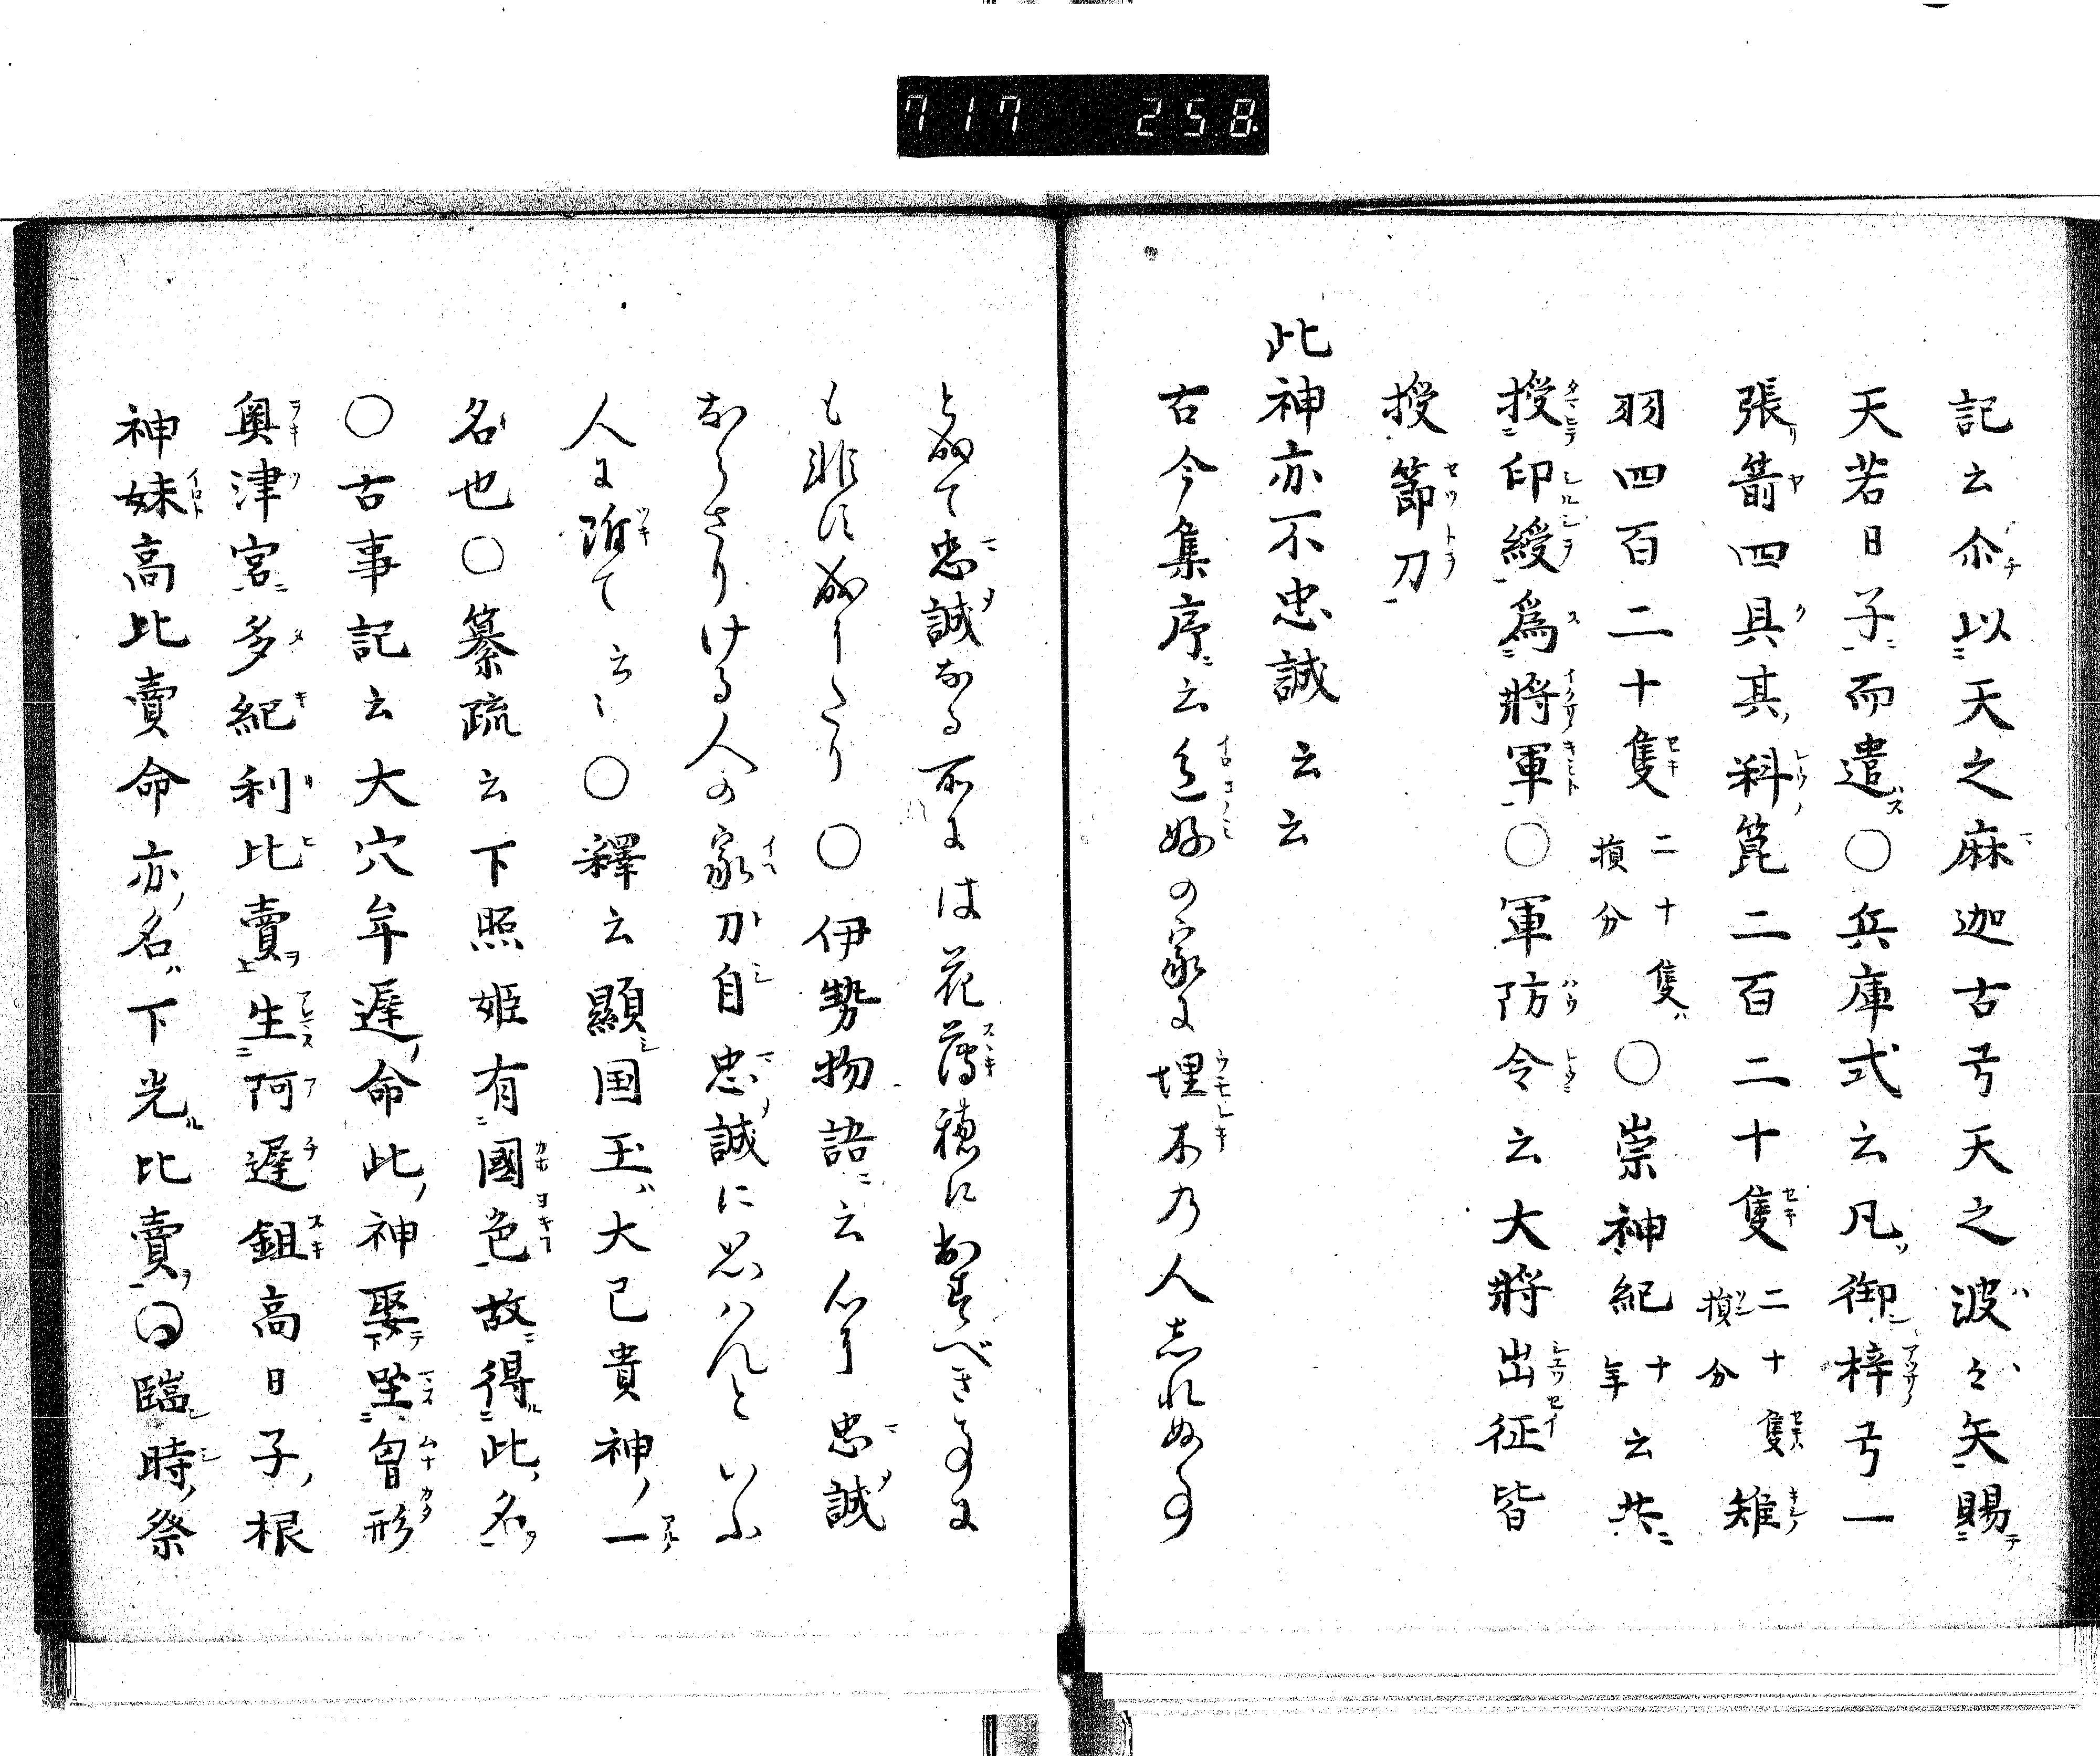 717 258
記云尒以天之麻迦古弓天之波々矢賜
天若日子而遣〇兵庫式云凡御梓弓一
張箭四具其料箆二百二十隻二十隻損分十隻年雉
羽四百二十隻二十隻損分〇崇神紀云共
授印綬為將軍〇軍防令云大將出征皆
授節刀
此神亦不忠誠云云
古今集序云色好の家に埋木乃人志れぬ事
と成て忠誠なる所には花薄穂に出すべき事に
も非ずなりにたり〇伊勢物語云 忠誠
ならさりける人の家刀自忠誠に思はんといふ
人に附て云々〇釋云顯国玉大已貴神一
名也〇纂疏云下照姫有國色故得此名
〇古事記云大穴牟遅命此神娶坐胷形
奥津宮多紀利比賣生阿遅鉏高日子根
神妹高比賣命亦名下光比賣〇臨時祭